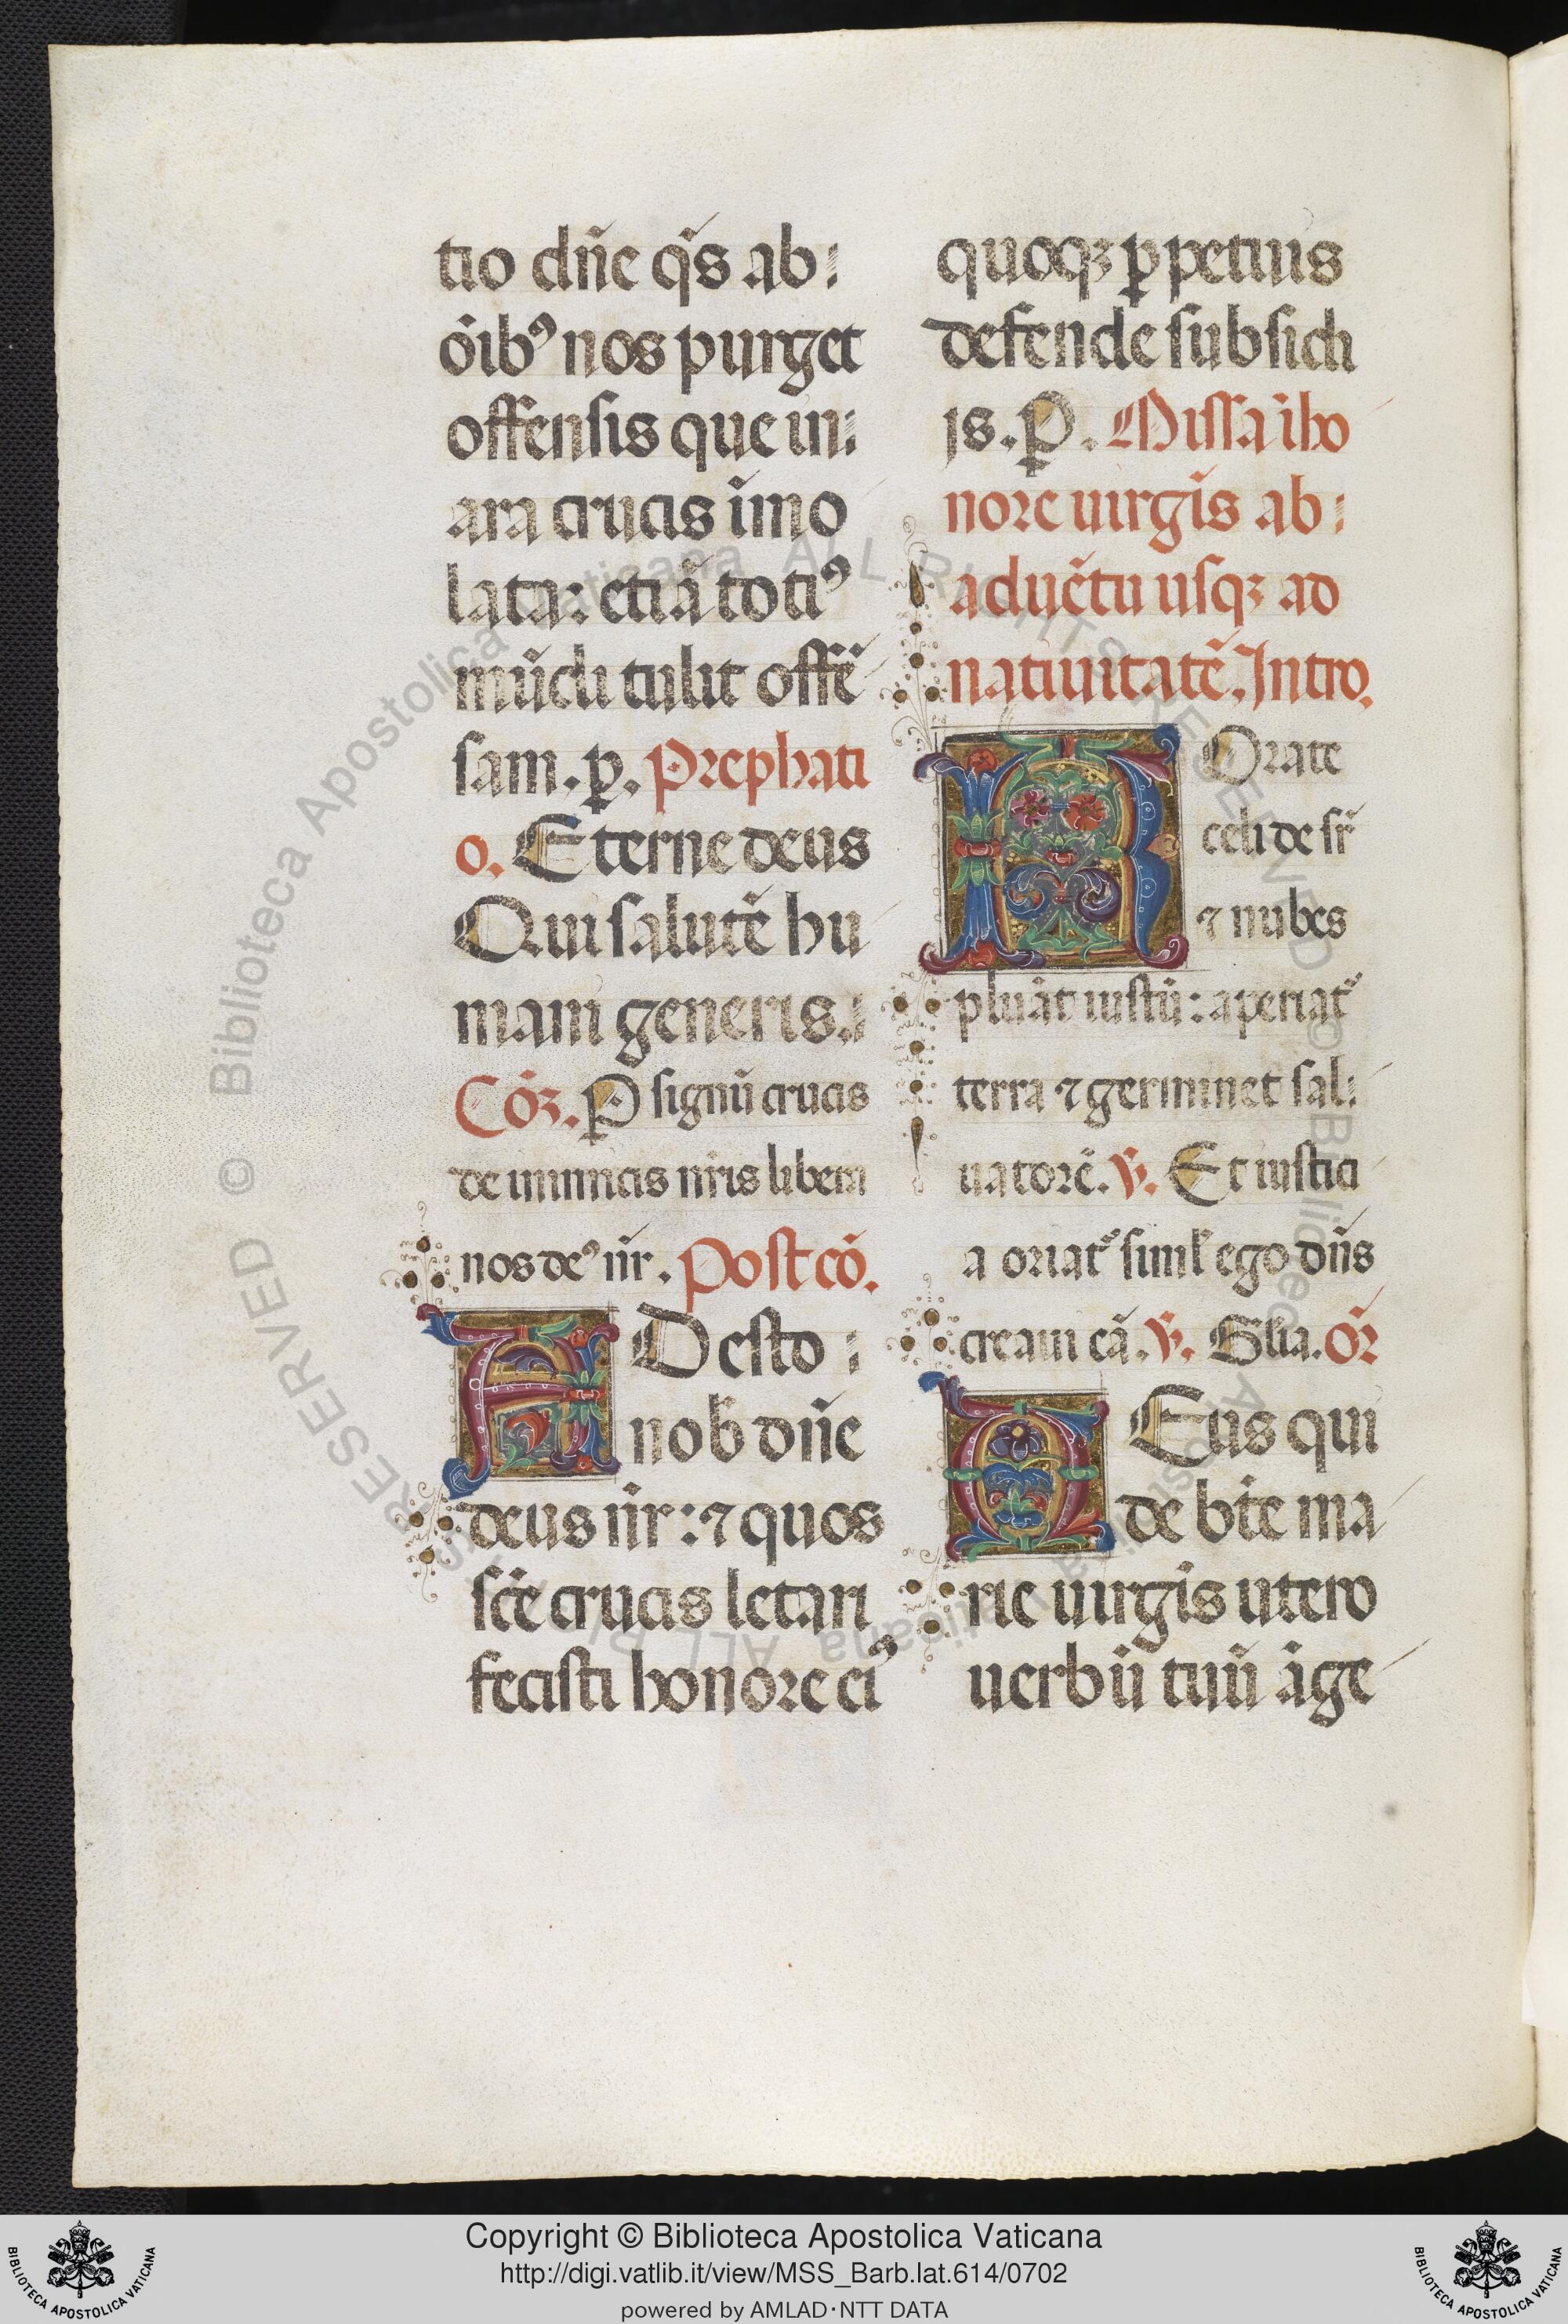 tio dñe q̃s ab⁝
õibꝰ nos purget
offensis que in⁝
ara crucis ĩmo
lata: etiã totiꝰ
mũdi tulit offẽ
sam. ꝑ. Prephati
o. Eterne deus
Qui salutẽ hu
mani generis.⁝
Cõꝫ. P signũ crucis
de inimicis nr̃is libera
nos deꝰ nr̃. Post cõ.
ADesto⁝
nob̃ dñe
deus nr̃: ⁊ quos
sc̃e crucis letari
fecisti honore eiꝰ
quoqꝫ ꝑpetuis
defende subsidi
js. P. Missa ĩ ho
nore uirgĩs ab⁝
aduẽtu usqꝫ ad
natiuitatẽ. Intro.
ROrate
celi desr̃
⁊ nubes
pluãt iustũ: aperiat᷑
terra ⁊ germinet sal⁝
uatorẽ. ꝟ. Et iustici
a oriat᷑ siml̃ ego dñs
creaui eã. ꝟ. Gl̃ia. Or̃
DEus qui
de bt̃e ma
rie uirgĩs utero
uerbũ tuũ ãge
© Biblioteca Apostolica Vaticana ALL RIGHTS RESERVED
Copyright © Biblioteca Apostolica Vaticana
http://digi.vatlib.it/view/MSS_Barb.lat.614/0702
powered by AMLAD·NTT DATA
BIBLIOTECA APOSTOLICA VATICANA
BIBLIOTECA APOSTOLICA VATICANA